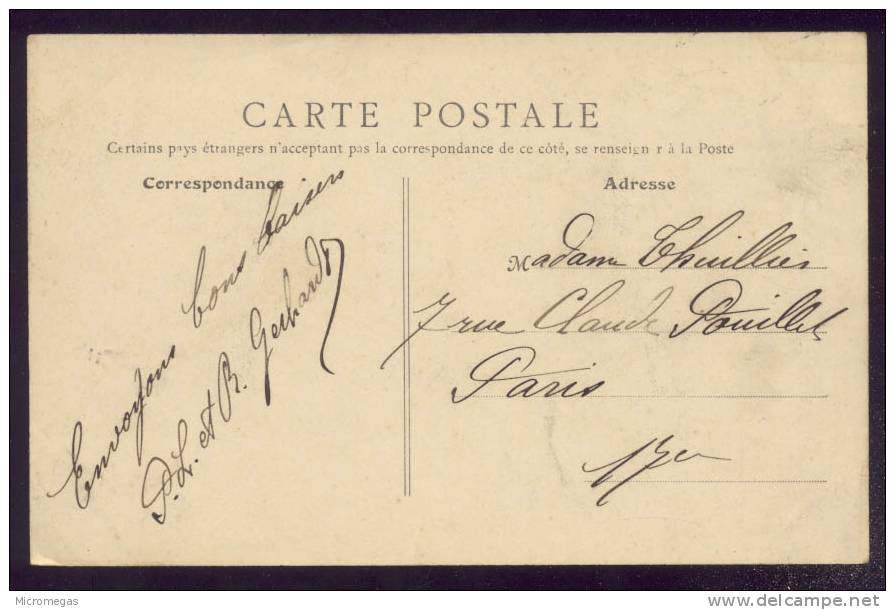 CARTE POSTALE
Certains pays étrangers n'acceptant pas la correspondance de ce côté, se renseign r à la Poste
Correspondance
Envoyons bons baisers
P. L. et R. Gerhardt
Adresse
Madame Thuillier
7 rue Claude Pouillet
Paris
17e
Micromegas
delcampe.net